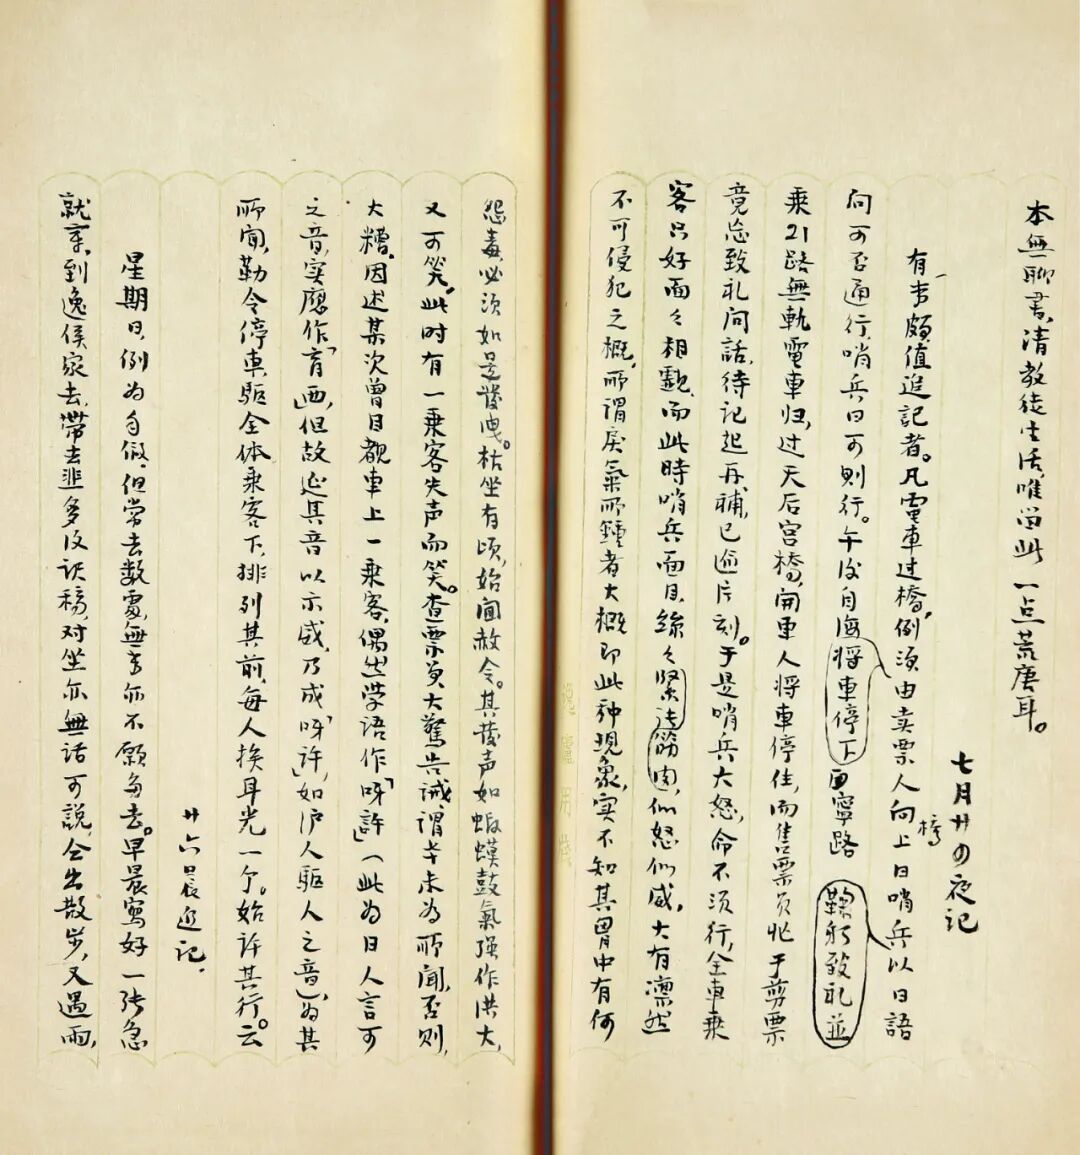 本無聊書，清教徒生活，唯留此一点荒唐耳。
七月廿四夜记
有一事頗值追記者。凡電車过橋，例须由卖票人向橋上日哨兵以日語
將車停下
鞠躬致礼並
问可否通行，哨兵曰可則行。午后自海寧路
乘21路無軌電車归，过天后宫橋，開車人将車停住，而售票员忙于剪票
竟忘致礼问話，待记起再補，已逾片刻。于是哨兵大怒，命不须行，全車乘
客只好面々相觀，而此時哨兵面目，絲々緊張筋肉，似怒似威，大有凛然
不可侵犯之概，所谓戾氣所鍾者大概即此种現象，实不知其胃中有何
怨毒，必须如是發洩。枯坐有顷，始闻赦令。其發声如蝦蟆鼓氣强作洪大，
又可笑，此时有一乘客失声而笑。查票员大驚告诫，谓幸未为所闻，否则，
大糟。因述某次曾目覩車上一乘客，偶然学語作「呀許」（此为日人言可
之音，实應作「育西」，但故延其音以示威，乃成「呀許」，如沪人驱人之音），为其
所闻，勒令停車，驱全体乘客下，排列其前，每人挨耳光一个。始许其行。云
廿六晨追记.
星期日，例为自假，但常去数處，無事亦不願多去。早晨寫好一张急
就章，到逸侯家去，带去稿，对坐亦無话可說，仝出散步，又遇雨，